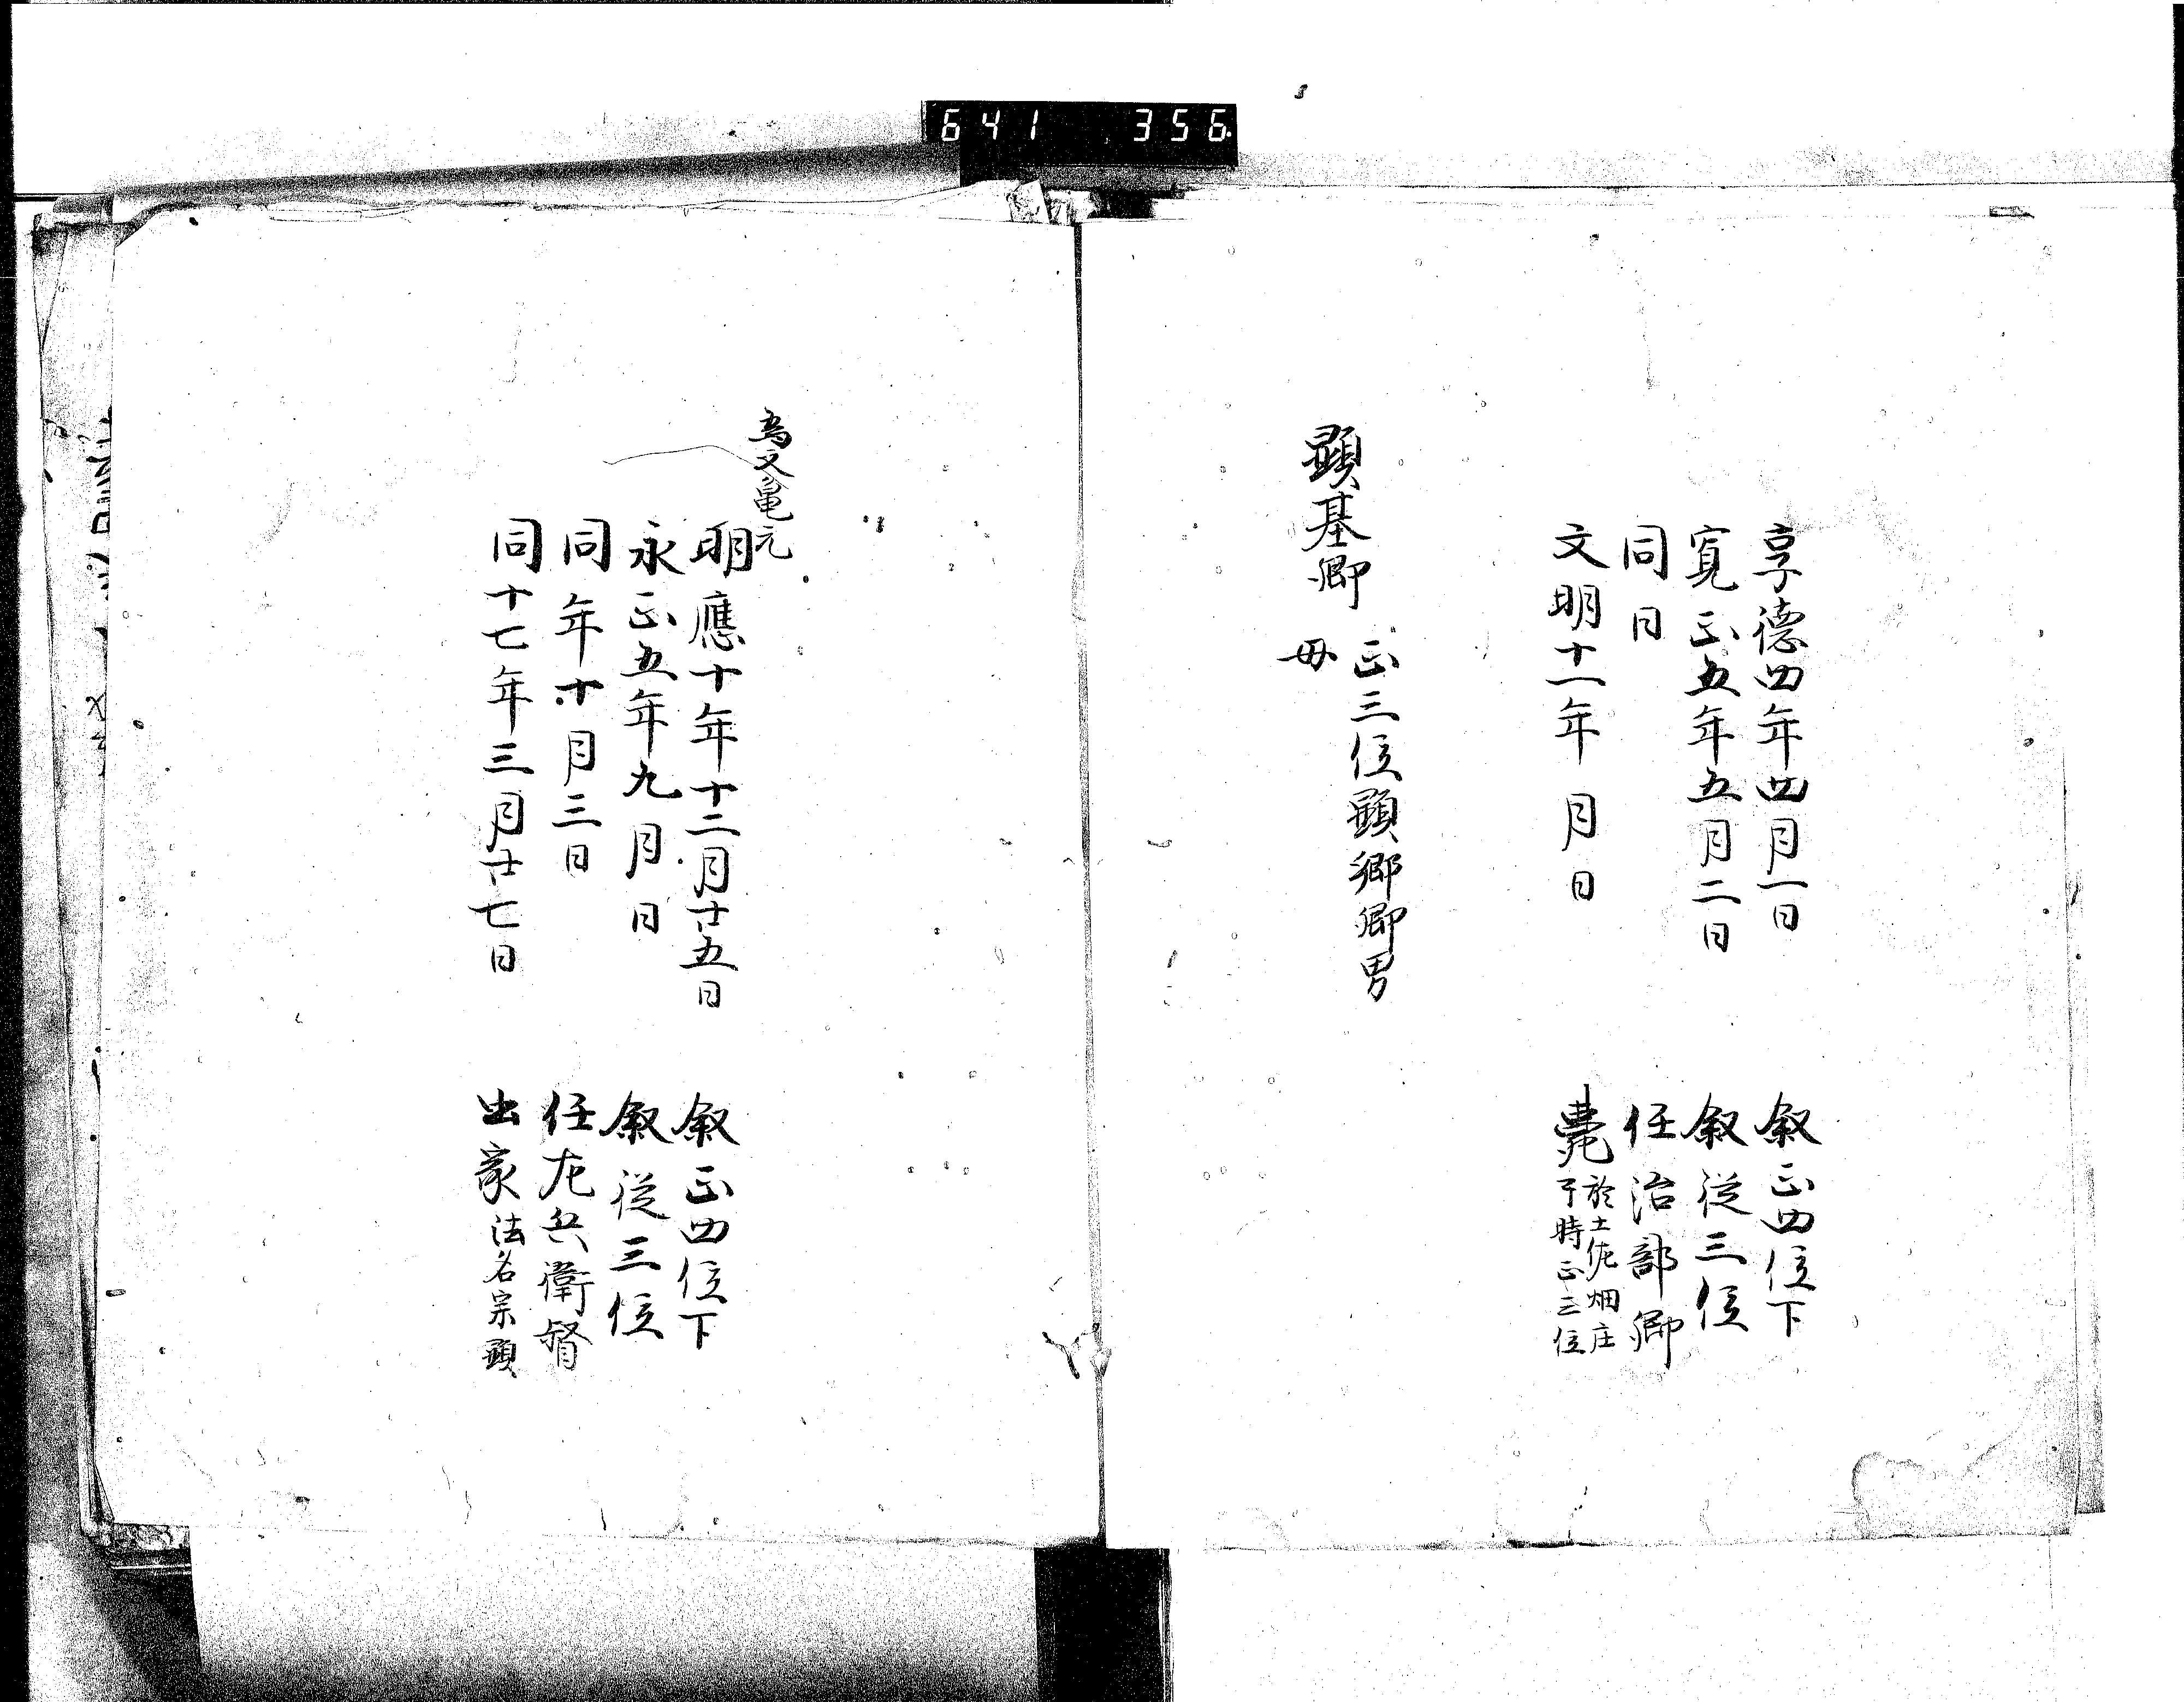 641 356
享德四年四月一日 叙正四位下
寛正五年五月二日 叙従三位
同日 任治部卿
文明十一年 月 日 薨
於土佐畑庄
于時正三位
顕基卿
正三位顕郷卿男
母
為文亀元
明應十年十二月廿五日 叙正四位下
永正五年九月 日 叙従三位
同年十月三日 任左兵衛督
同十七年三月廿七日 出家 法名宗顕